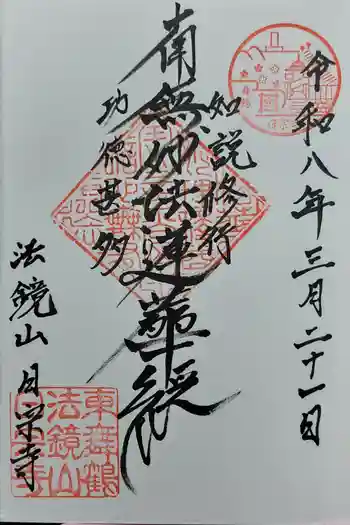 令和八年三月二十一日
如説修行
南無妙法蓮華経
功徳甚多
法鏡山日栄寺
東舞鶴
法鏡山
日栄寺